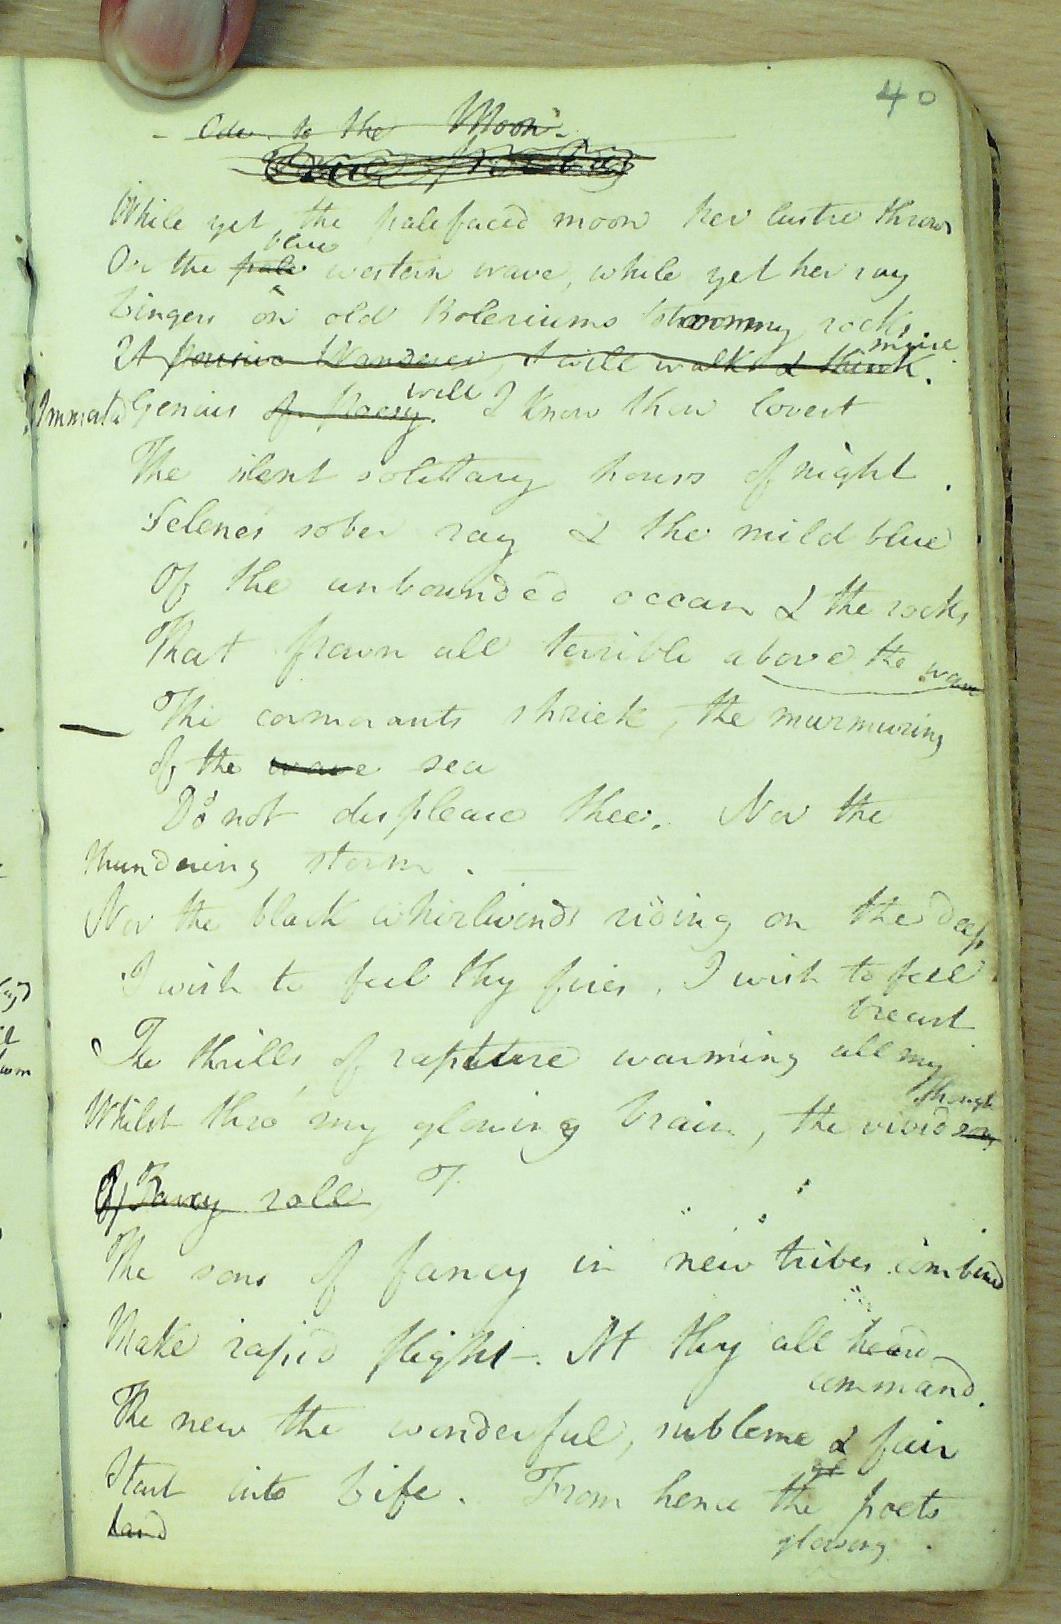 40
- Ode to the Moon -
While yet the palefaced moon her lustre throws
blue
On the pale western wave, while yet her ray
Lingers on old Boleriums stormy rocks
A pensive Wanderer, I will walk & think.
muse
will
Immortal Genius of Poesy. I know thou lovest
The silent solitary hours of night.
Selene's sober ray & the mild blue
Of the unbounded ocean & the rocks
That frown all terrible above the wave
The cormorants shriek, the murmuring
of the wave sea
Do not displease thee. Nor the
thundering storm.
Nor the black whirlwinds riding on the deep
I wish to feel thy fires, I wish to feel
breast
The thrills of rapture warming all my
thought
Whilst thro' my glowing brain, the vivid sons
Of Fancy roll T
The sons of fancy in new tribes combined
Make rapid flight. At thy all heard
command.
The new the wonderful, sublime & fair
Start into Life. From hence the poets
land
glowing.